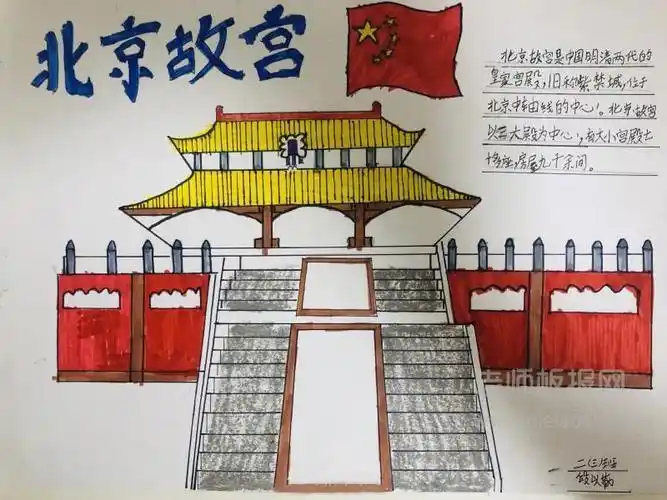 北京故宫
北京故宫是中国明清两代的
皇家宫殿，旧称紫禁城，位于
北京中轴线的中心。北京故宫
以三大殿为中心，有大小宫殿七
十多座，房屋九千余间。
老师板报网
二（三）班